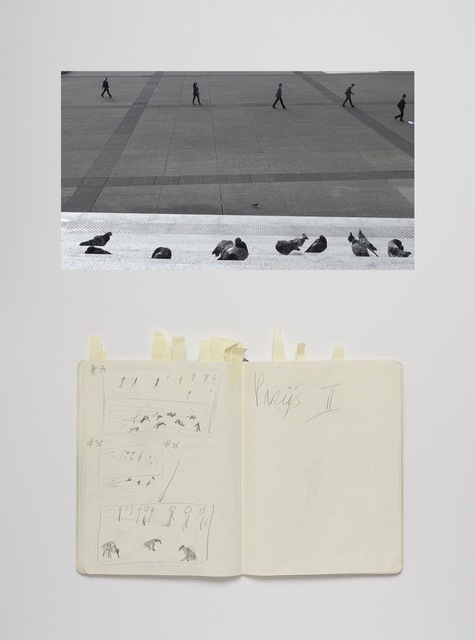 #35 #36
Parijs II